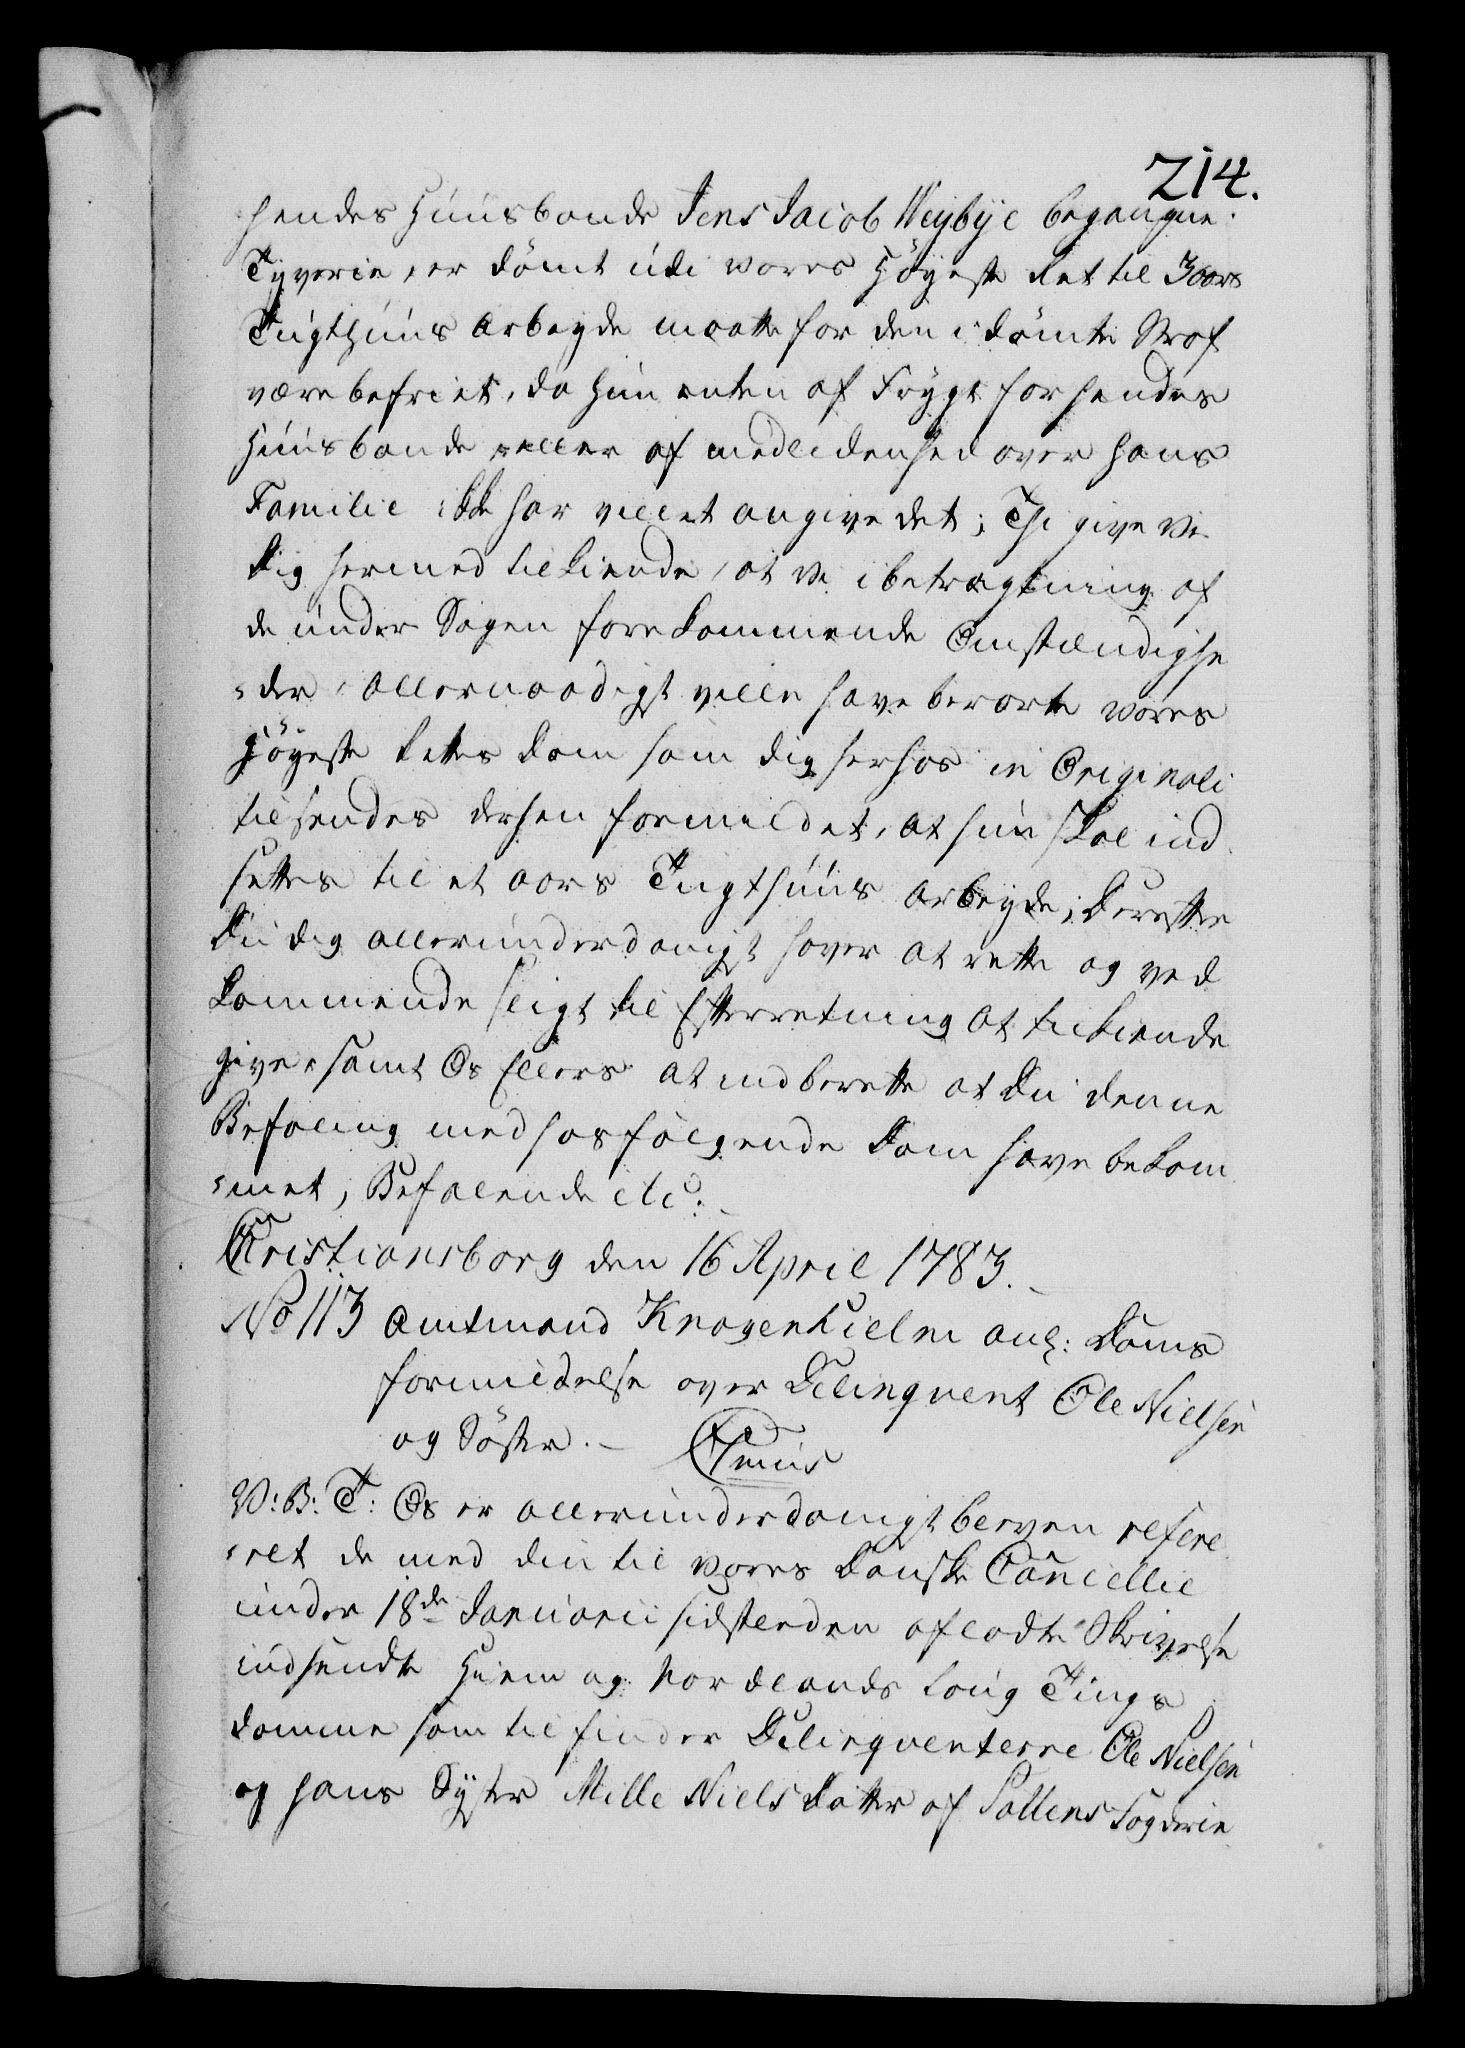 214.
hendes Huusbonde Jens Jacob Weybÿe begangne
Tÿverie, er dömt udi vores Höyeste Ret til 3 aars
Tugthuus Arbeyde maatte for den i dömte Straf
være befriet, da hun enten af Frygt for hendes
Huusbonde eller af medlidenhed over hans
Familie ikke har villet angive det; Thi give Vi
Dig hermed tilkiende, at Vi i betragtning af
de under Sagen forekommende Omstændighe
-der, allernaadigst ville have berørte vores
Höyeste Rettes Dom som dig herhos in Originali
tilsendes derhen formildet, at hun skal ind
settes til et aars Tugthuus Arbeyde; Derefter
Du dig allerunderdanigst haver at rette og ved
kommende sligt til Efterretning at tilkiende
give, samt Os Ellers at indberette at Du denne
Befaling med hosfølgende Dom have bekom
-met, Befalende etc:
Christiansborg den 16 April 1783.
No 113 Amtmand Knagenhielm anl: Doms
formildelse over Delinqvent Ole Nielsen
og Söster.
V: B: T: Os er allerunderdanigst bleven refere
-ret de med din til vores Danske Cancellie
under 18de Januarii sidstleden afladte Skrivelse
indsendte Hiem og Nordlands Laug Tings
Domme som tilfinder Delinqventerne Ole Nielsen
og hans Syster Mille Niels Datter af Saltens Fogderie